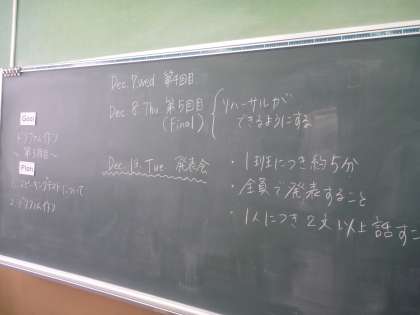 Dec. 7. wed 第4回目
Dec 8. Thu 第5回目
(Final)
リハーサルが
できるようにする
Goal
ドラフト作り
～第3回目～
Plan
1. スピーキングテストについて
2. ドラフト作り
Tue 発表会
・1班につき約5分
・全員で発表すること
・1人につき2文以上話すこ